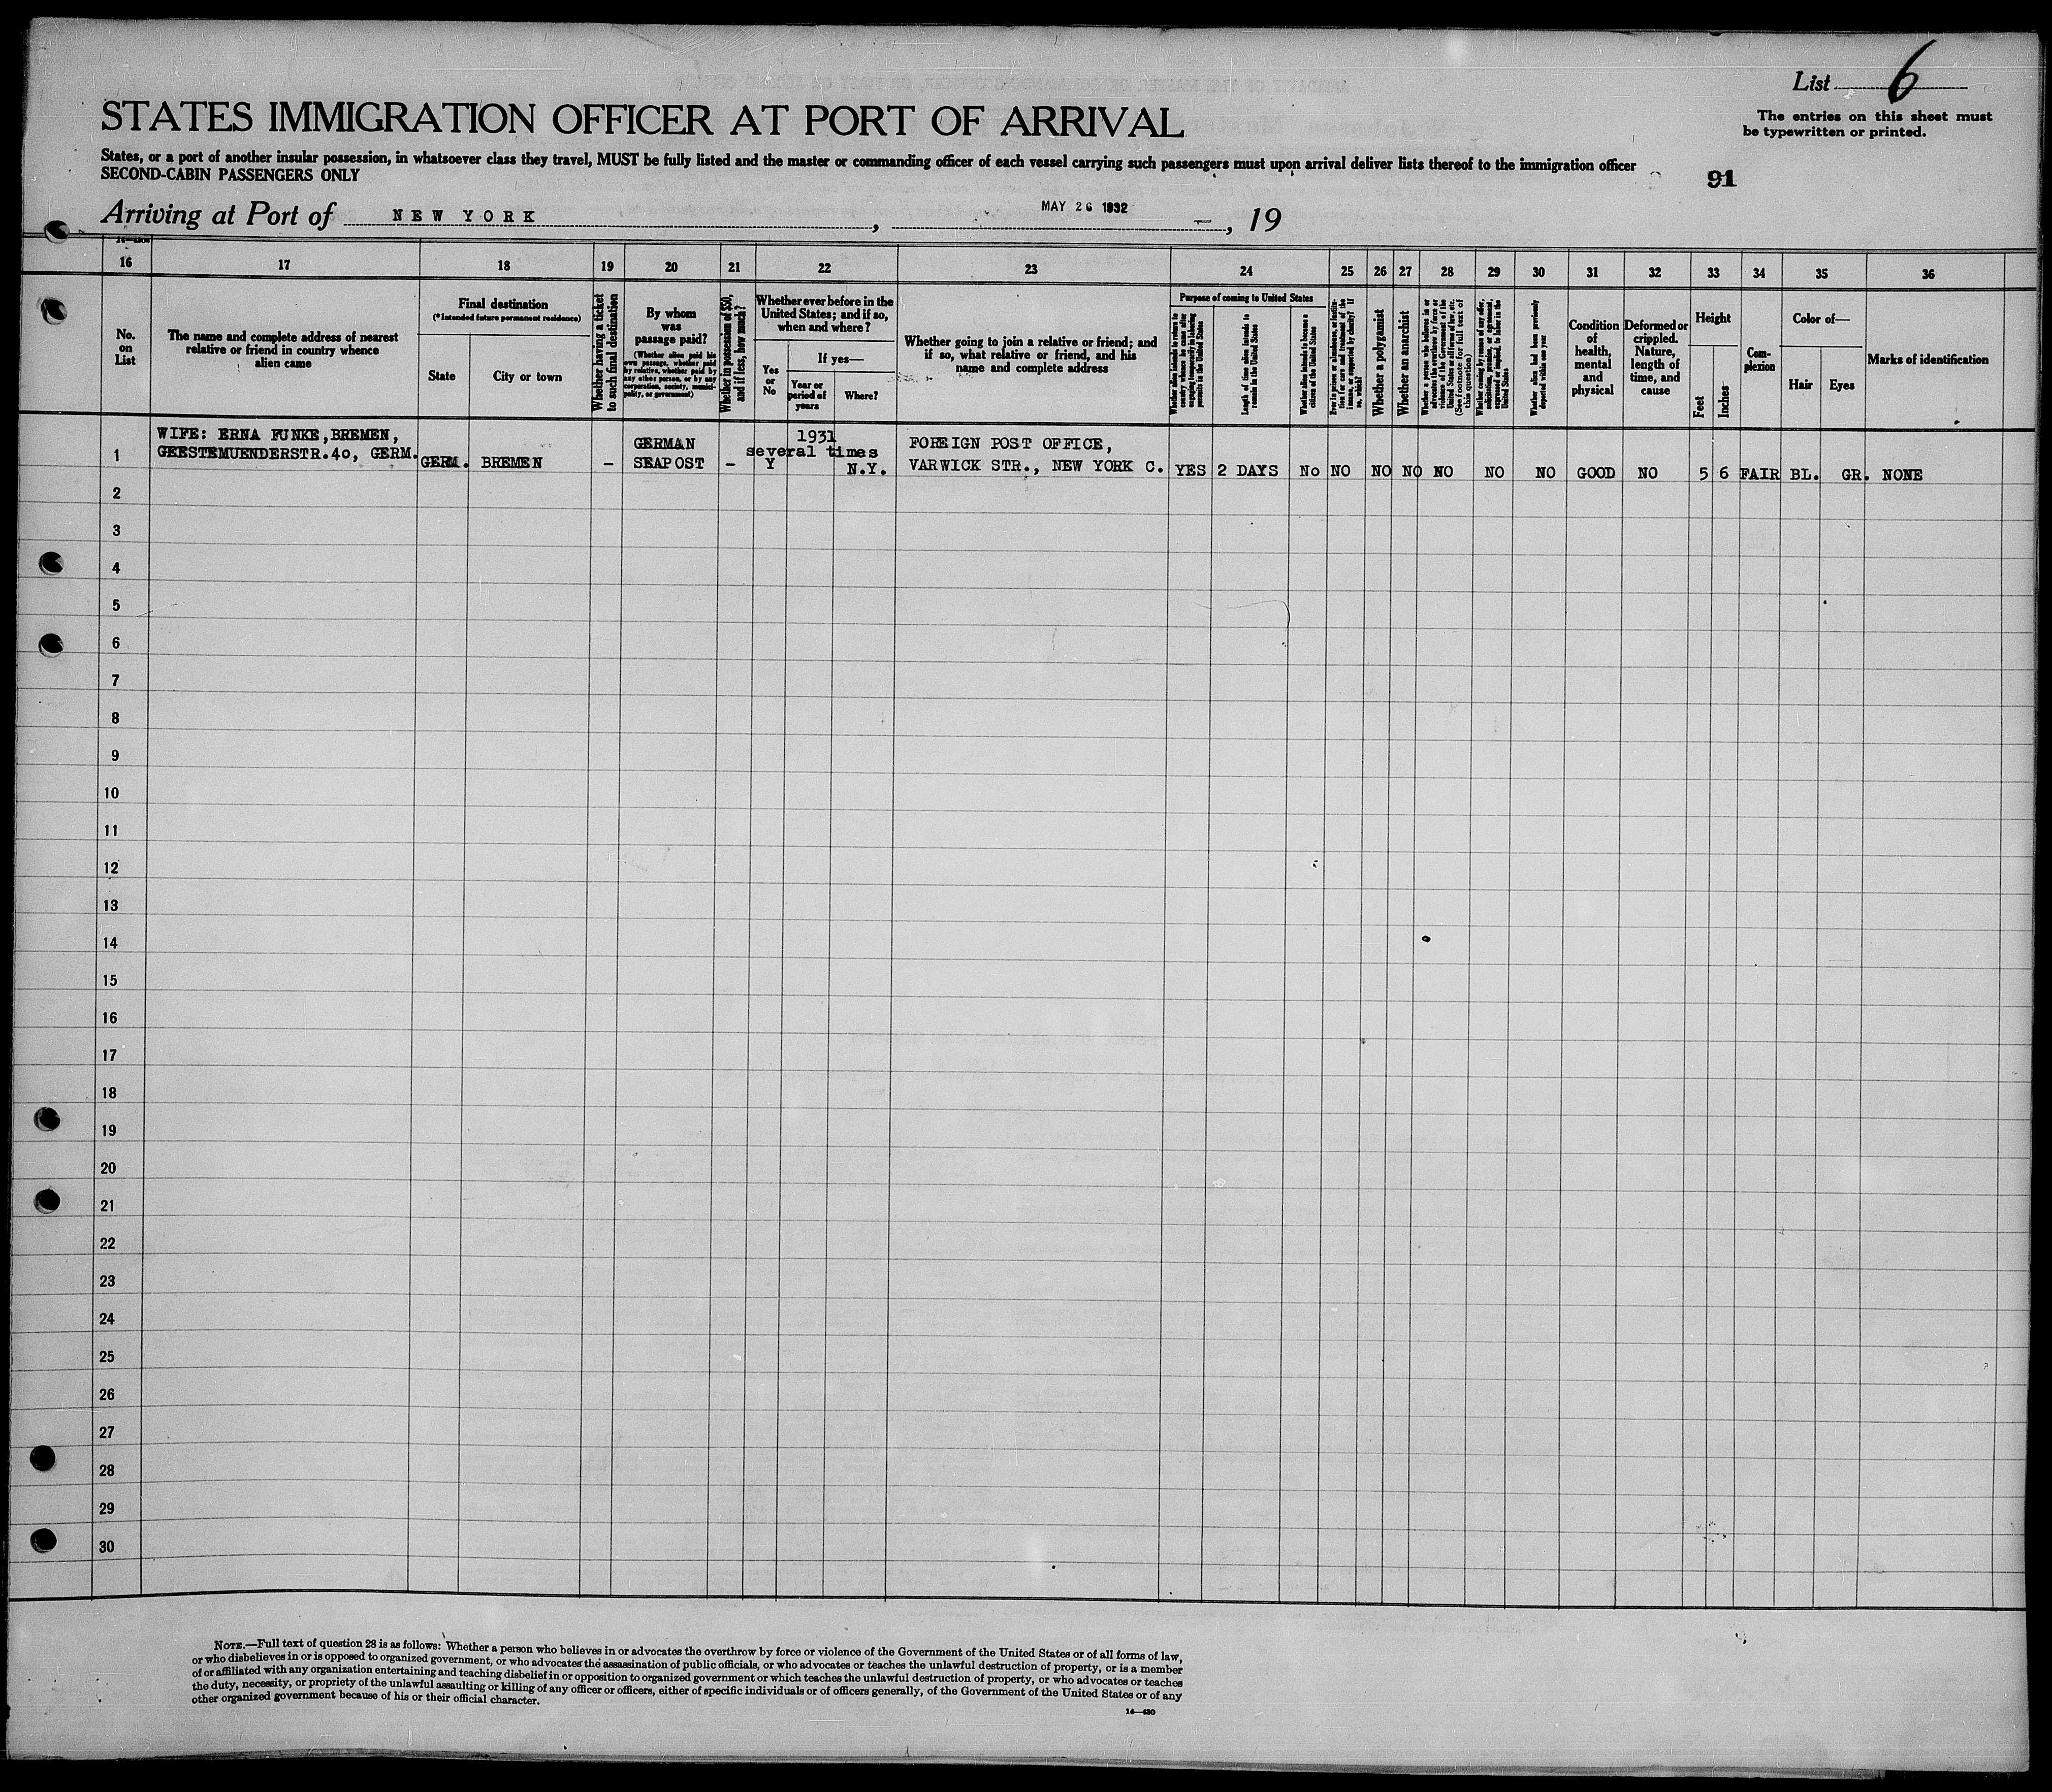 List 6
The entries on this sheet must
be typewritten or printed.
STATES IMMIGRATION OFFICER AT PORT OF ARRIVAL
States, or a port of another insular possession, in whatsoever class they travel, MUST be fully listed and the master or commanding officer of each vessel carrying such passengers must upon arrival deliver lists thereof to the immigration officer
SECOND-CABIN PASSENGERS ONLY
91
Arriving at Port of NEW YORK, MAY 26 1932, 19
16 17 18 19 20 21 22 23 24 25 26 27 28 29 30 31 32 33 34 35 36
No.
on
List
The name and complete address of nearest
relative or friend in country whence
alien came
Final destination
(*Intended future permanent residence)
State
City or town
Whether having a ticket
to such final destination
By whom
was
passage paid?
(Whether alien paid his
own passage, whether paid
by relative, whether paid by
any other person, or by any
corporation, society, munici-
pality, or government)
Whether in possession of $50,
and if less, how much?
Whether ever before in the
United States; and if so,
when and where?
Yes
or
No
If yes—
Year or
period of
years
Where?
Whether going to join a relative or friend; and
if so, what relative or friend, and his
name and complete address
Purpose of coming to United States
Whether alien intends to return to
country whence he came after
engaging temporarily in laboring
pursuits in the United States
Length of time alien intends to
remain in the United States
Whether alien intends to become a
citizen of the United States
Ever in prison or almshouse, or institu-
tion for care and treatment of the
insane, or supported by charity? If
so, which?
Whether a polygamist
Whether an anarchist
Whether a person who believes in or
advocates the overthrow by force or
violence of the Government of the
United States or all forms of law, etc.
(See footnote for full text of
this question)
Whether coming by reason of any offer,
solicitation, promise, or agreement,
expressed or implied, to labor in the
United States
Whether alien had been previously
deported within one year
Condition
of
health,
mental
and
physical
Deformed or
crippled.
Nature,
length of
time, and
cause
Height
Feet
Inches
Com-
plexion
Color of—
Hair
Eyes
Marks of identification
1
WIFE: ERNA FUNKE, BREMEN,
GEESTEMUENDERSTR.40, GERM.
GERM. BREMEN
–
GERMAN
SEAPOST
–
1931
several times
Y
N.Y.
FOREIGN POST OFFICE,
VARWICK STR., NEW YORK C.
YES 2 DAYS No NO NO NO NO NO NO GOOD NO 5 6 FAIR BL. GR. NONE
2
3
4
5
6
7
8
9
10
11
12
13
14
15
16
17
18
19
20
21
22
23
24
25
26
27
28
29
30
NOTE.—Full text of question 28 is as follows: Whether a person who believes in or advocates the overthrow by force or violence of the Government of the United States or of all forms of law,
or who disbelieves in or is opposed to organized government, or who advocates the assassination of public officials, or who advocates or teaches the unlawful destruction of property, or is a member
of or affiliated with any organization entertaining and teaching disbelief in or opposition to organized government or which teaches the unlawful destruction of property, or who advocates or teaches
the duty, necessity, or propriety of the unlawful assaulting or killing of any officer or officers, either of specific individuals or of officers generally, of the Government of the United States or of any
other organized government because of his or their official character.
14—430